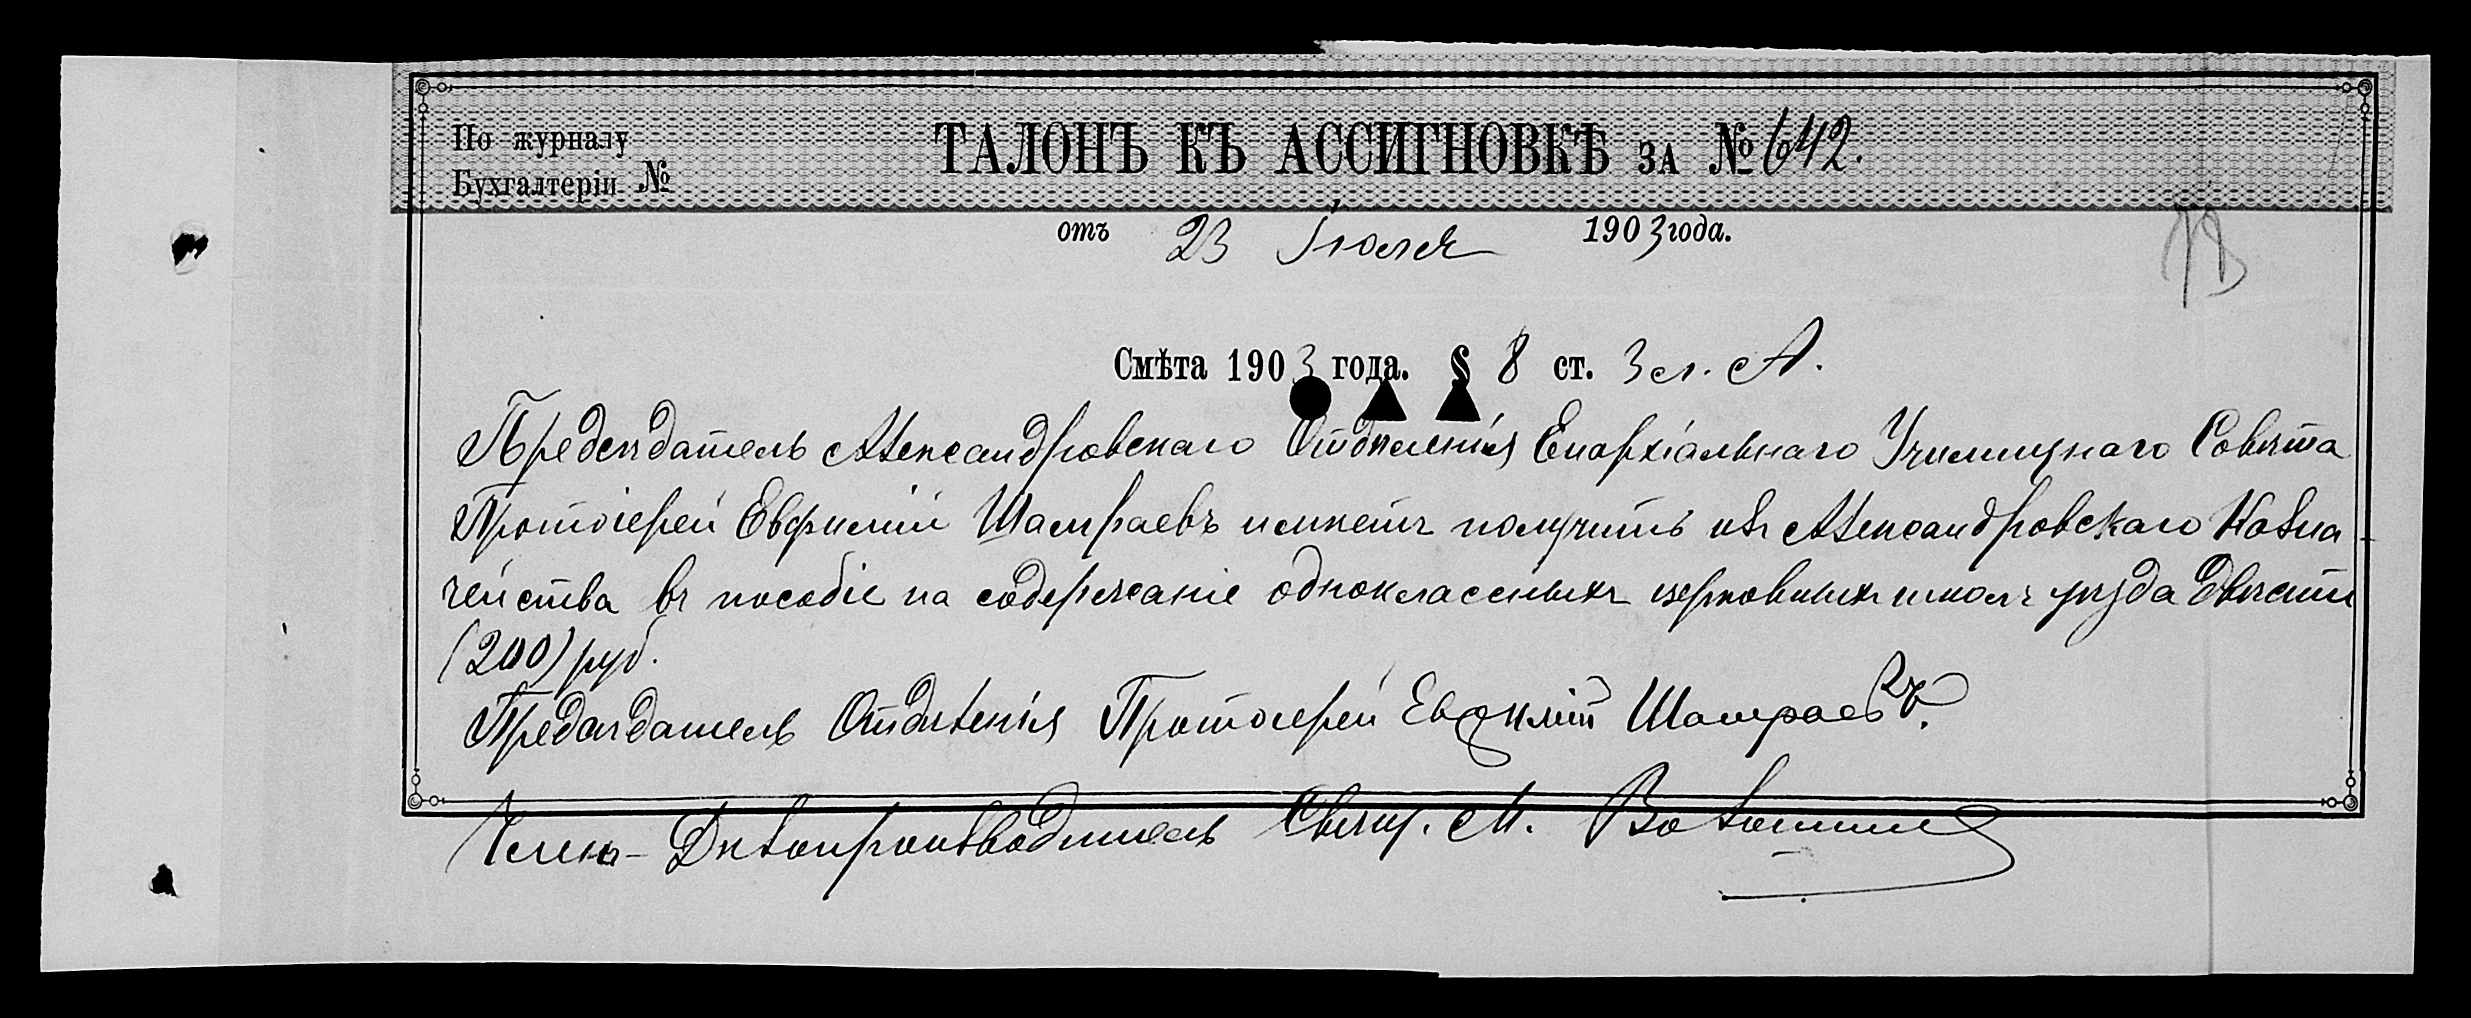 По журналу
Бухгалтеріи №
ТАЛОНЪ КЪ АССИГНОВКѢ ЗА № 642.
отъ 23 Іюля 1903 года.
Смѣта 1903 года. § 8 ст. 3 л. А.
Предсѣдатель Александровскаго Отдѣленія Епархіальнаго Училищнаго Совѣта
Протоіерей Евфимій Шамраевъ имѣетъ получить изъ Александровскаго Казна
чейства въ пособіе на содержаніе одноклассныхъ церковныхъ школъ уѣзда Двѣсти
(200) руб.
Предсѣдатель Отдѣленія Протоіерей Евфимій Шамраевъ.
Членъ-Дѣлопроизводитель Свящ. М. Волошинъ